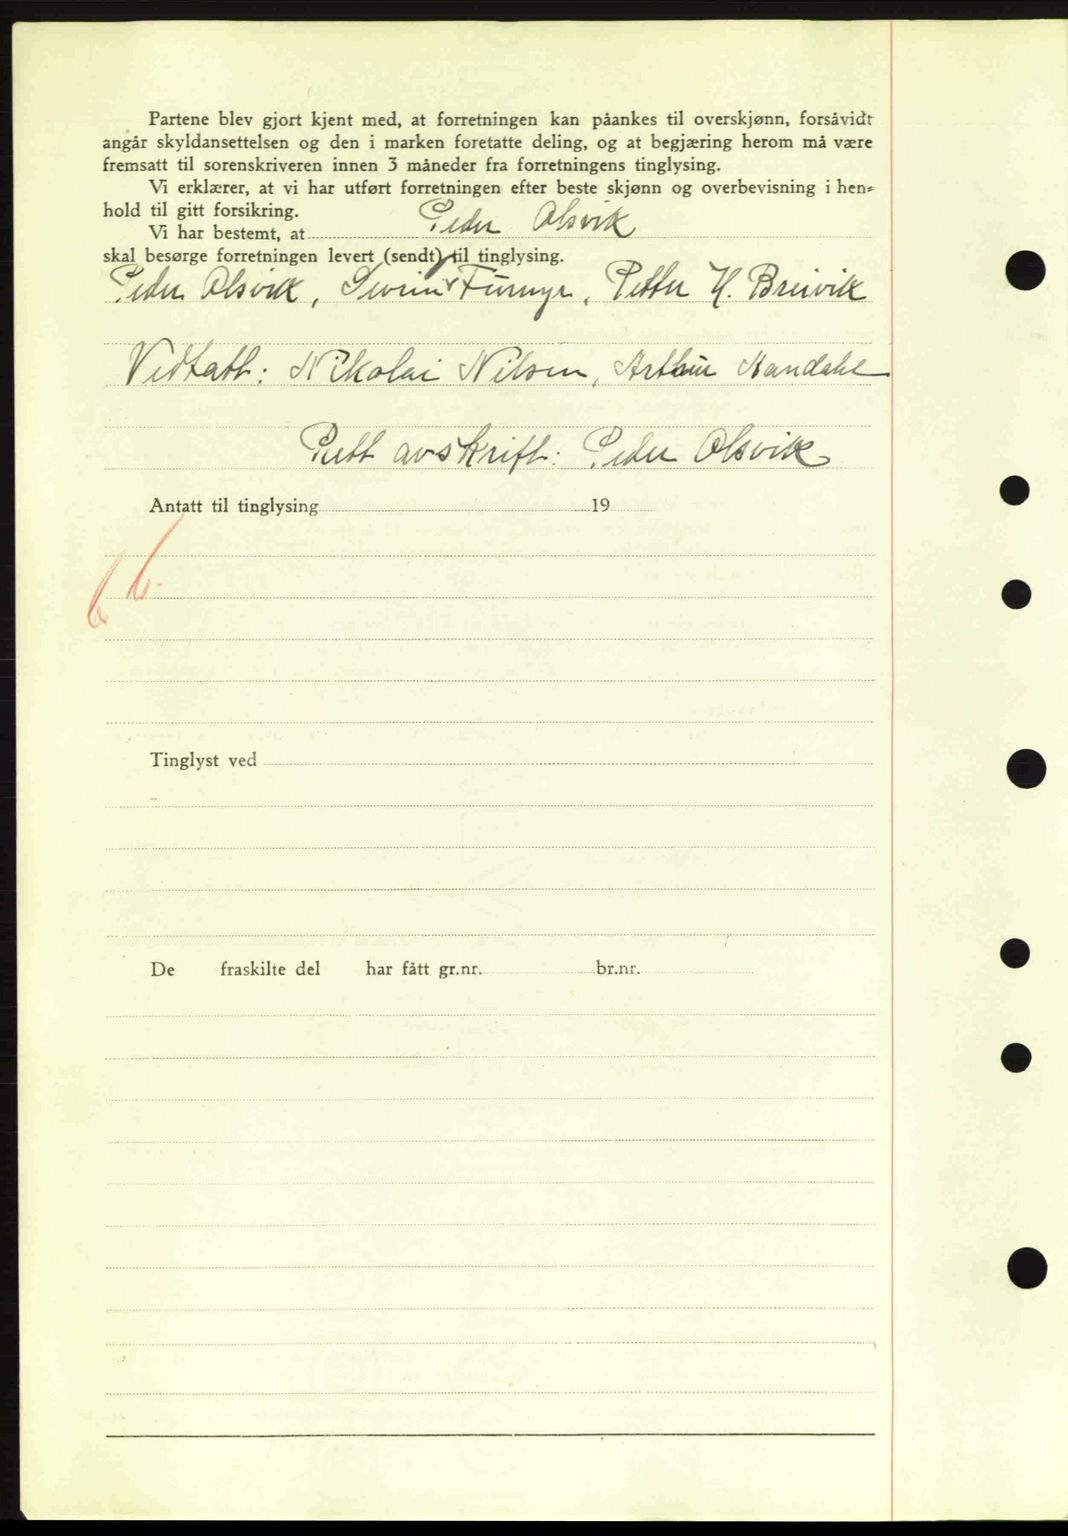 Partene blev gjort kjent med, at forretningen kan påankes til overskjønn, forsåvidt
angår skyldansettelsen og den i marken foretatte deling, og at begjæring herom må være
fremsatt til sorenskriveren innen 3 måneder fra forretningens tinglysing.
Vi erklærer, at vi har utført forretningen efter beste skjønn og overbevisning i hen=
hold til gitt forsikring.
Vi har bestemt, at Peder Olsvik
skal besørge forretningen levert (sendt) til tinglysing.
Peder Olsvik, Severin Furmyr, Petter H. Breivik
Vedtatt: Nikolai Nilsen, Arthur Mandahl
Rett avskrift: Peder Olsvik
Antatt til tinglysing 19
6 6
Tinglyst ved
De fraskilte del har fått gr.nr. br.nr.